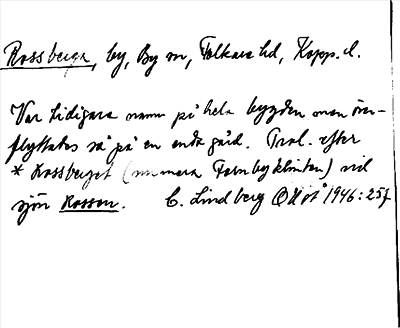 Rossberga, by, By sn, Folkare hd, Kopp. l.
Var tidigare namn på hela bygden men över-
flyttades så på en enda gård. Trol. efter
* Rossberget (numera Fornbyklinten) vid
sjön Rossen. C. Lindberg OUOÅ 1946: 257